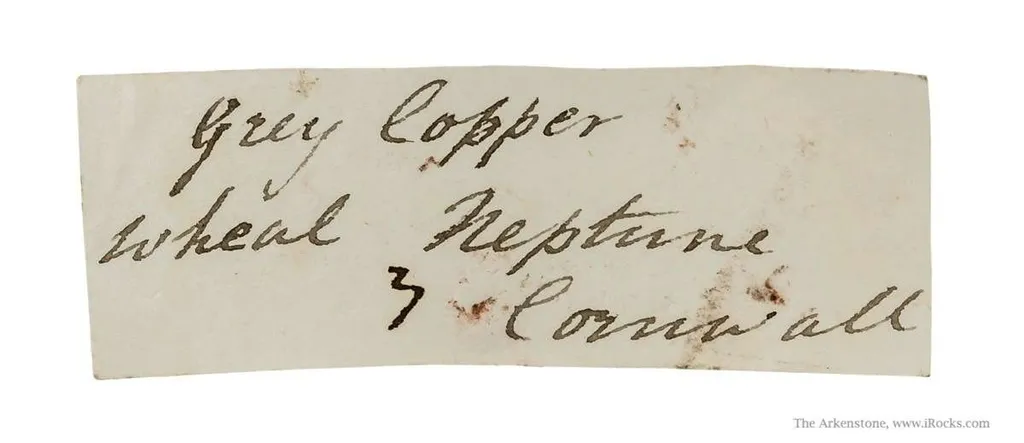 Grey Copper
Wheal Neptune
3 Cornwall
The Arkenstone, www.iRocks.com